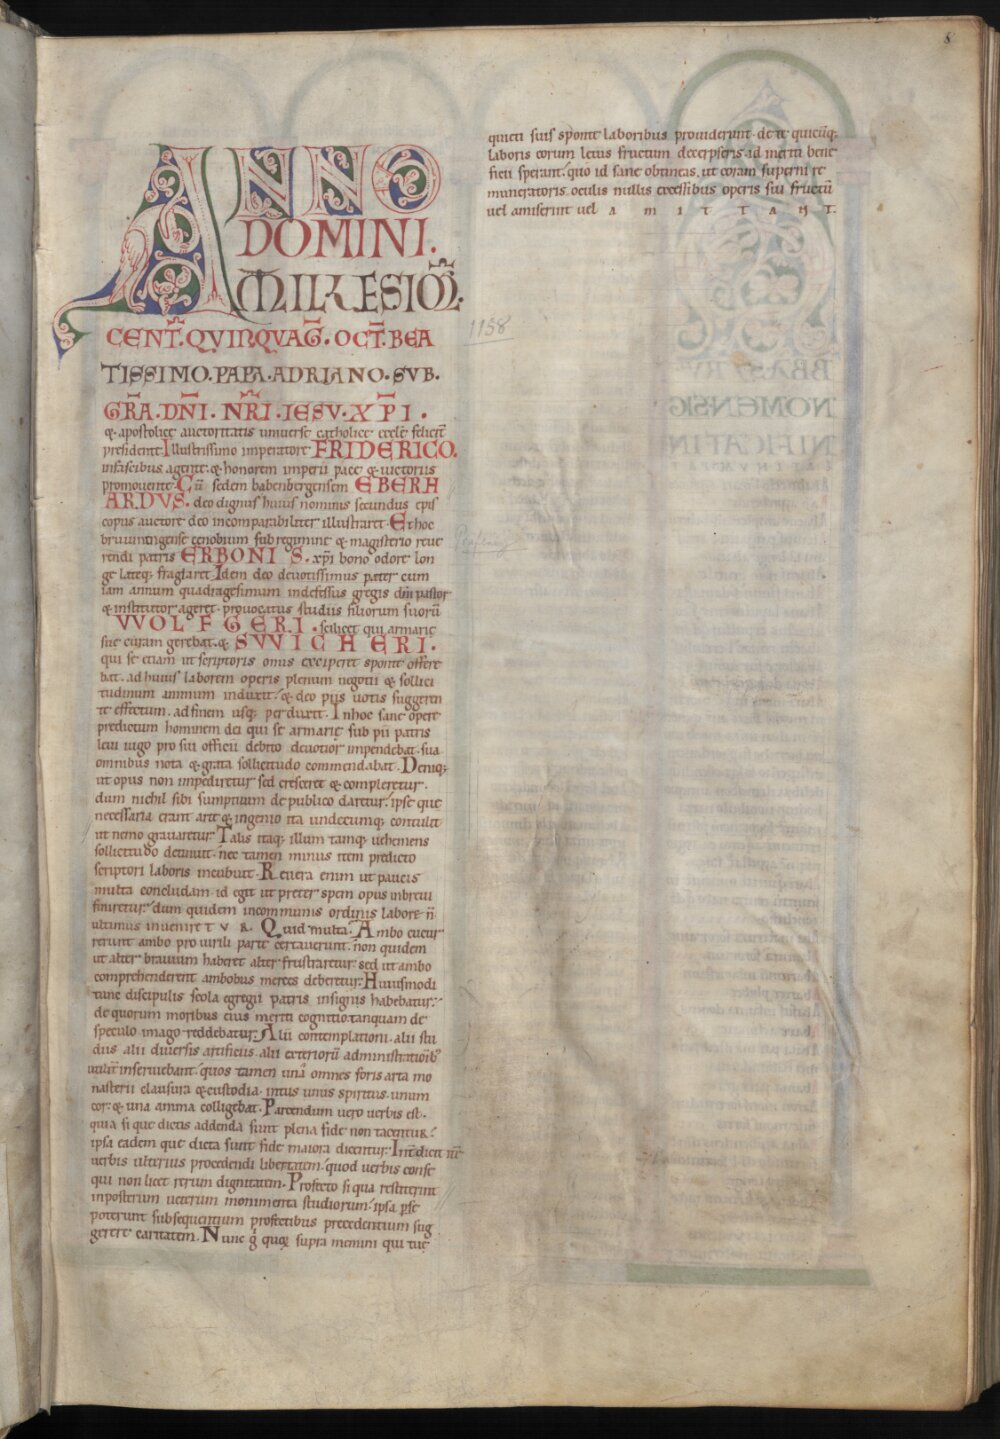 8
ANNO
DOMINI.
MILLESIM̄.
CENT̄. QVINQVAḠ. OCT̄. BEA
TISSIMO. PAPA. ADRIANO. SVB.
GR̄A. DN̄I. NR̄I. IESV. XP̄I.
& apostolicę auctoritatis universę catholicę ęcclē feliciť
presidente. Illustrissimo imperatore FRIDERICO.
in fascibus agente. & honorem imperii pace & victoriis
promovente. Cū sedem babenbergensem EBERH
ARDVS. deo dignus huius nominis secundus epis
copus auctore deo incomparabiliter illustraret. Et hoc
bruviningense cenobium sub regimine & magisterio reve
rendi patris ERBONIS. xp̄i bono odore lon
ge lateq; fraglaret. Idem deo devotissimus pater cum
iam annum quadragesimum indefessus gregis dn̄i pastor
& institutor ageret. provocatus studiis filiorum suorū
WOLFGERI. scilicet qui armarię
suę curam gerebat. & SWICHERI.
qui se etiam ut scriptoris onus exciperet sponte offere
bat. ad huius laborem operis plenum negotii & sollici
tudinum animum induxit. & deo piis votis suggeren
te effectum. ad finem usq; perduxit. In hoc sane opere
predictum hominem dei qui se armarię sub pii patris
levi iugo pro sui officii debito devotior impendebat. sua
omnibus nota & grata sollicitudo commendabat. Deniq;
ut opus non impediretur sed cresceret & compleretur.
dum nichil sibi sumptuum de publico daretur. ipse quę
necessaria erant arte & ingenio ita undecumq; contulit
ut nemo gravaretur. Talis itaq; illum tamq; vehemens
sollicitudo detinuit. nec tamen minus item predicto
scriptori laboris incubuit. Revera enim ut paucis
multa concludam. id egit ut preter spem opus in brevi
finiretur. dum quidem in communis ordinis labore n̄
ultimus inveniretur. Quid multa. Ambo cucur
rerunt ambo pro virili parte certaverunt. non quidem
ut alter bravium haberet alter frustraretur. sed ut ambo
comprehenderent ambobus merces deberetur. Huiusmodi
tunc discipulis scola egregii patris insignis habebatur.
de quorum moribus eius meriti cognitio. tanquam de
speculo imago reddebatur. Alii contemplationi. alii stu
diis alii diversis artificiis. alii exteriorū administratiōib'
inserviebant. quos tamen unā omnes foris arta mo
nasterii clausura & custodia. intus unus spiritus. unum
cor. & una anima colligebat. Parcendum vero verbis est.
quia si quę dictis addenda sunt plena fide non tacentur.
ipsa eadem quę dicta sunt fide maiora dicentur.
verbis ulterius procedendi libertatem. quod verbis conse
qui non licet rerum dignitatem. Profecto si qua restiterint
in posterum veterum monimenta studiorum. ipsa p̄se
poterunt subsequentium profectibus precedentium sug
gerere caritatem. Nunc g̊ quoq; supra memini qui tuę
quieti suis sponte laboribus providerunt. de te quicūq;
laboris eorum levis fructum decerpseris. ad meriti bene
ficii sperant. quo id sane obtineas. ut coram superni re
muneratoris oculis nullis excessibus operis sui fructū
vel amiserint vel AMITTANT.
1158